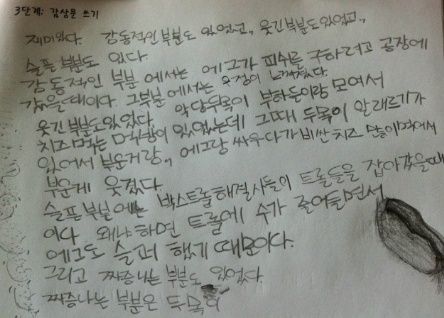 3단계: 감상문 쓰기
재미있다. 감동적인 부분도 있었고, 웃긴부분도있었고,
슬픈 부분도 있다
감동적인 부분 에서는 에그가 피쉬를 구하려고 공장에
갔을때이다. 그부분에서는 우정이 느껴졌다.
웃긴부분도있었다. 악당두목이 부하들이랑 모여서
치즈 먹는 모임이 있었는데 그때 두목이 알레르기가
있어서 부은거랑, 에그랑 싸우다가 비싼 치즈 덩이에서
부은게 웃겼다.
슬픈 부분에는 박스트롤해결사들이 트롤들을 잡아갔을때
이다. 왜냐하면 트롤에 수가 줄어들면서
에그도 슬퍼 했기 때문이다.
그리고 짜증나는 부분도 있었다.
짜증나는 부분은 두목이